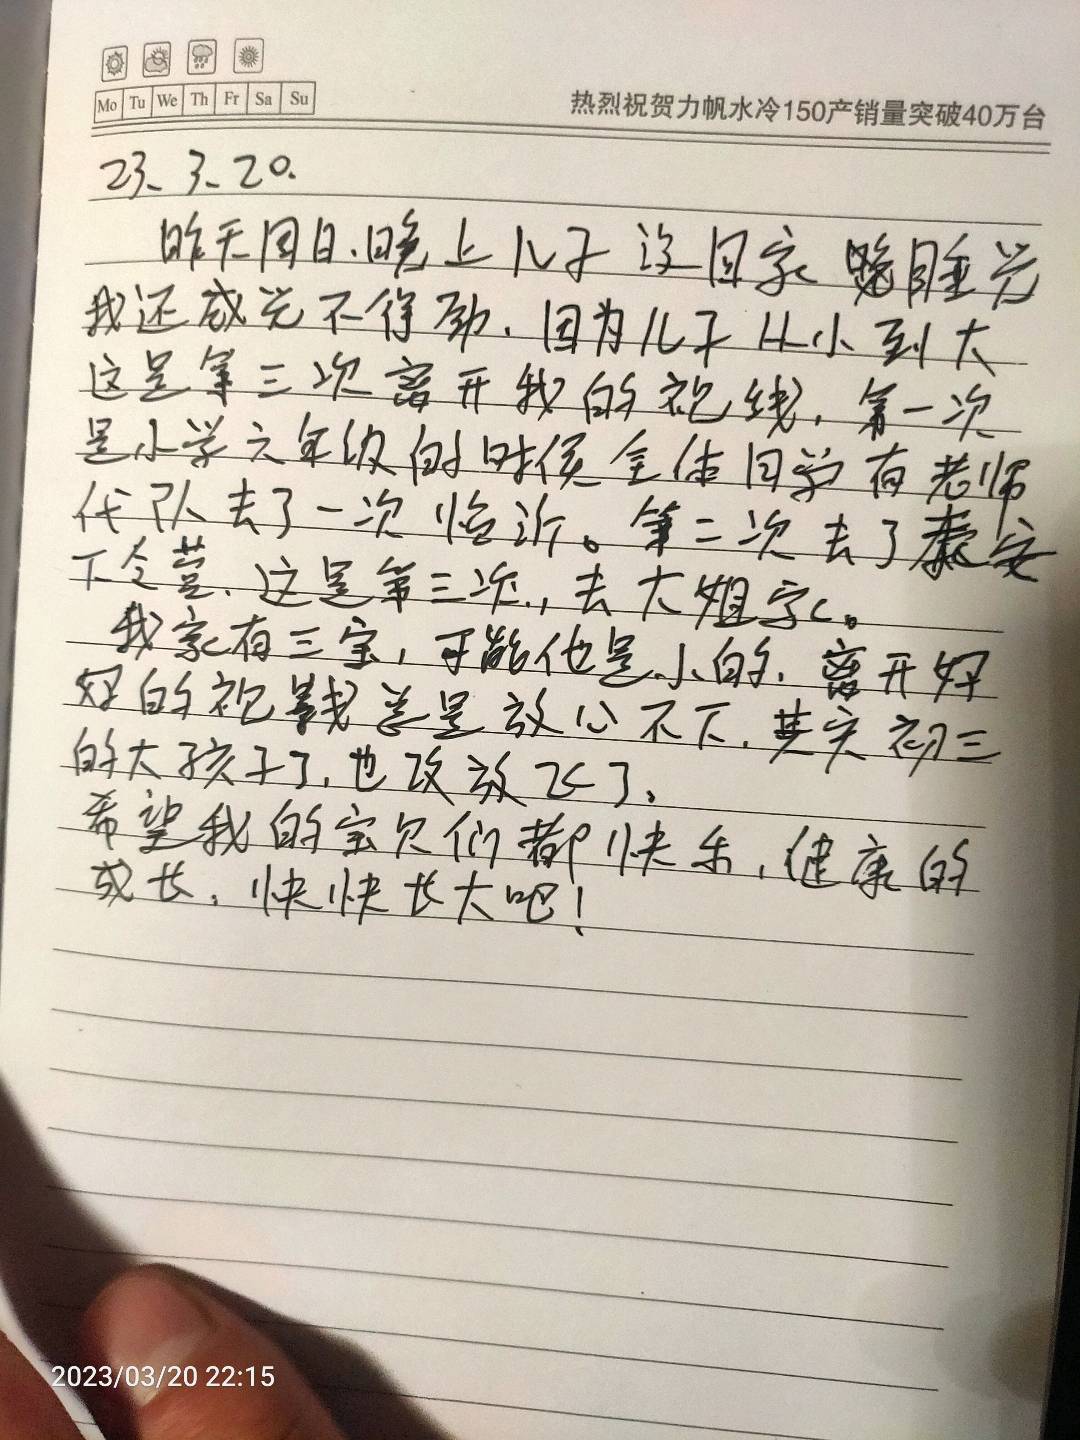 Mo Tu We Th Fr Sa Su
热烈祝贺力帆水冷150产销量突破40万台
23、3、20.
昨天周日.晚上儿子没回家 睡觉
我还感觉不得劲.因为儿子从小到大
这是第三次离开我的视线，第一次
是小学六年级的时候全体同学有老师
代队去了一次临沂。第二次去了泰安
下令营、这是第三次.，去大姐家。
我家有三宝，可能他是小的.离开妈
妈的视线总是放心不下.其实初三
的大孩子了.也改放飞了、
希望我的宝贝们都快乐，健康的
成长，快快长大吧！
2023/03/20 22:15